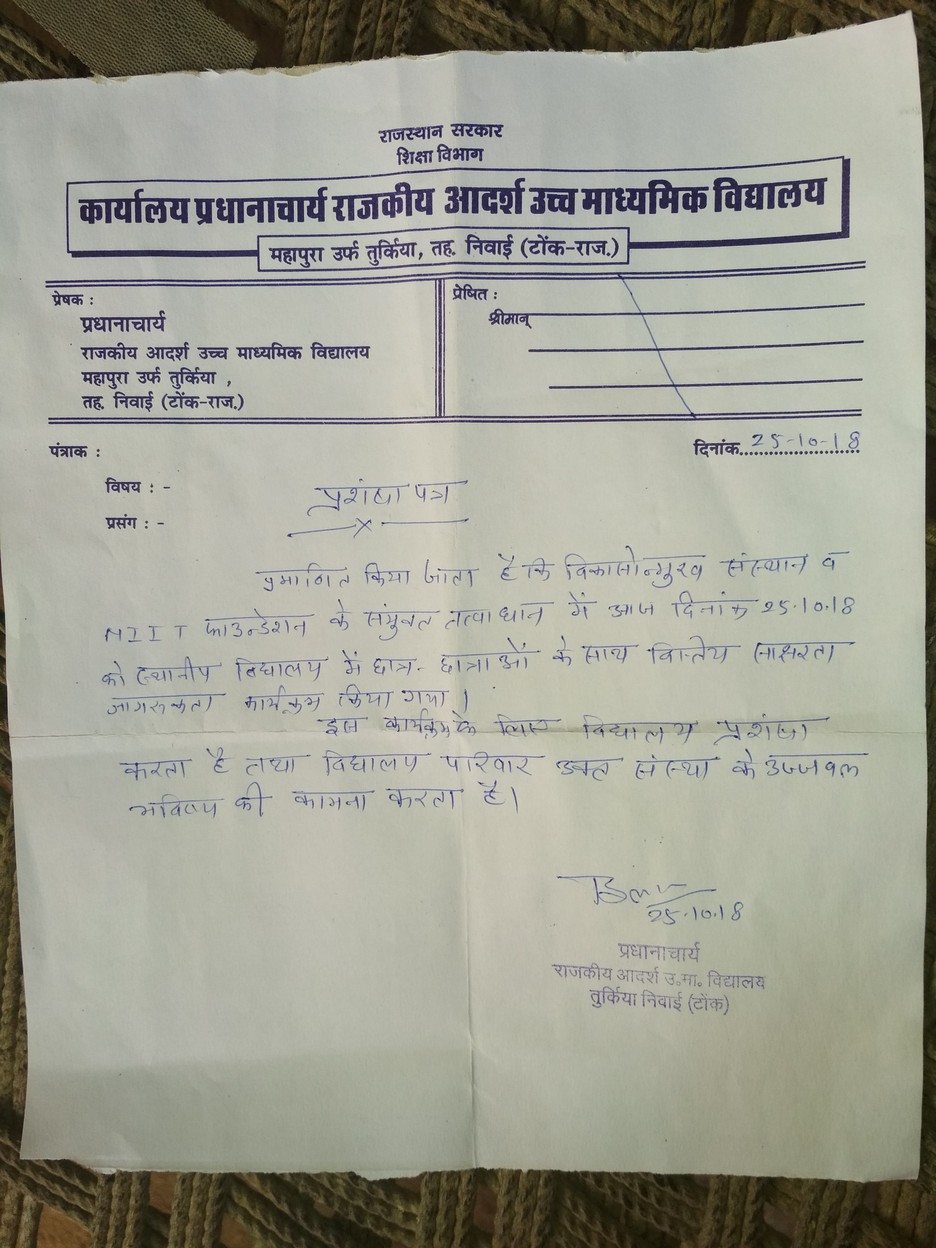 राजस्थान सरकार
शिक्षा विभाग
कार्यालय प्रधानाचार्य राजकीय आदर्श उच्च माध्यमिक विद्यालय
महापुरा उर्फ तुर्किया, तह. निवाई (टोंक-राज.)
प्रेषक :
प्रधानाचार्य
राजकीय आदर्श उच्च माध्यमिक विद्यालय
महापुरा उर्फ तुर्किया ,
तह. निवाई (टोंक-राज.)
प्रेषित :
श्रीमान्
पंत्राक :
दिनांक 25-10-18
विषय : -
प्रशंषा पत्र
प्रसंग : -
प्रमाणित किया जाता है कि विकासोन्मुख संस्थान व
NIIT फाउन्डेशन के संयुक्त तत्वाधान में आज दिनांक 25.10.18
को स्थानीय विद्यालय में छात्र- छात्राओं के साथ वित्तिय साक्षरता
जागरुकता कार्यक्रम किया गया।
इस कार्यक्रम के लिए विद्यालय प्रशंषा
करता है तथा विद्यालय परिवार उक्त संस्था के उज्जवल
भविष्य की कामना करता है।
25.10.18
प्रधानाचार्य
राजकीय आदर्श उ॰मा॰ विद्यालय
तुर्किया निवाई (टोंक)